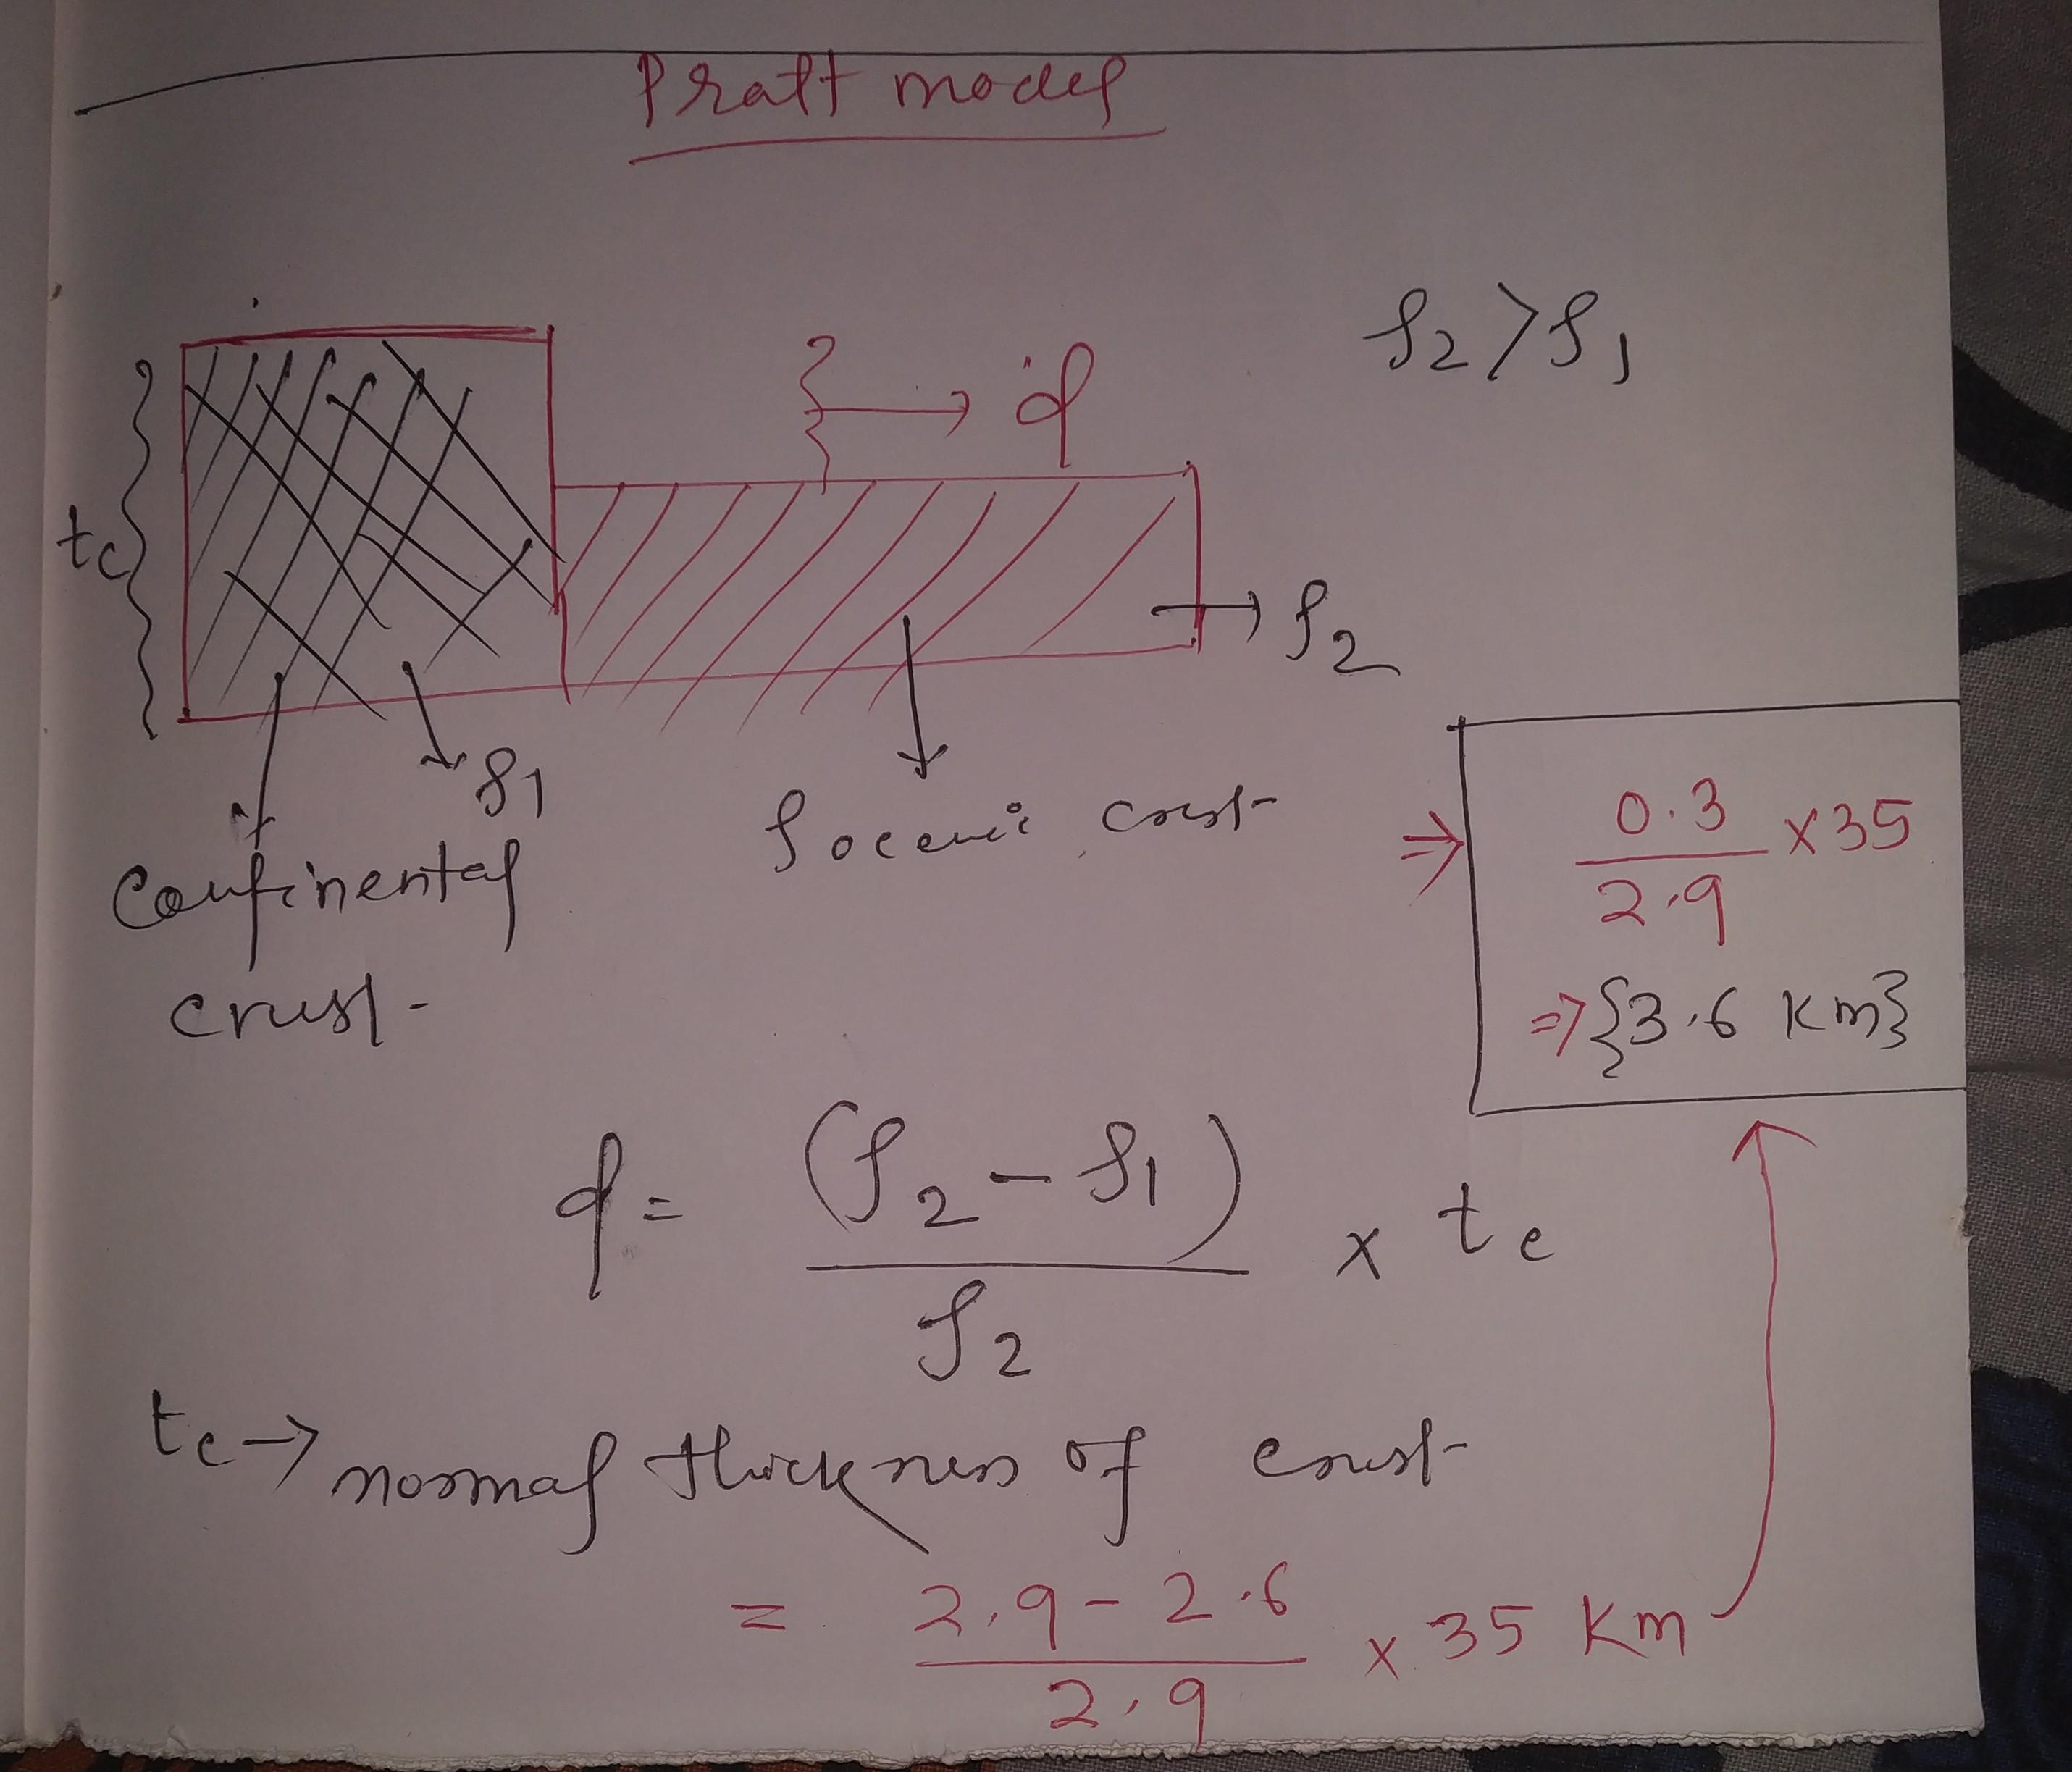 Pratt model
ρ2 > ρ1
d
tc
ρ2
ρ1
ρ oceanic crust
continental
crust
⇒ 0.3 / 2.9 × 35
⇒ {3.6 Km}
d = (ρ2 - ρ1) / ρ2 × tc
tc → normal thickness of crust
= 2.9 - 2.6 / 2.9 × 35 Km